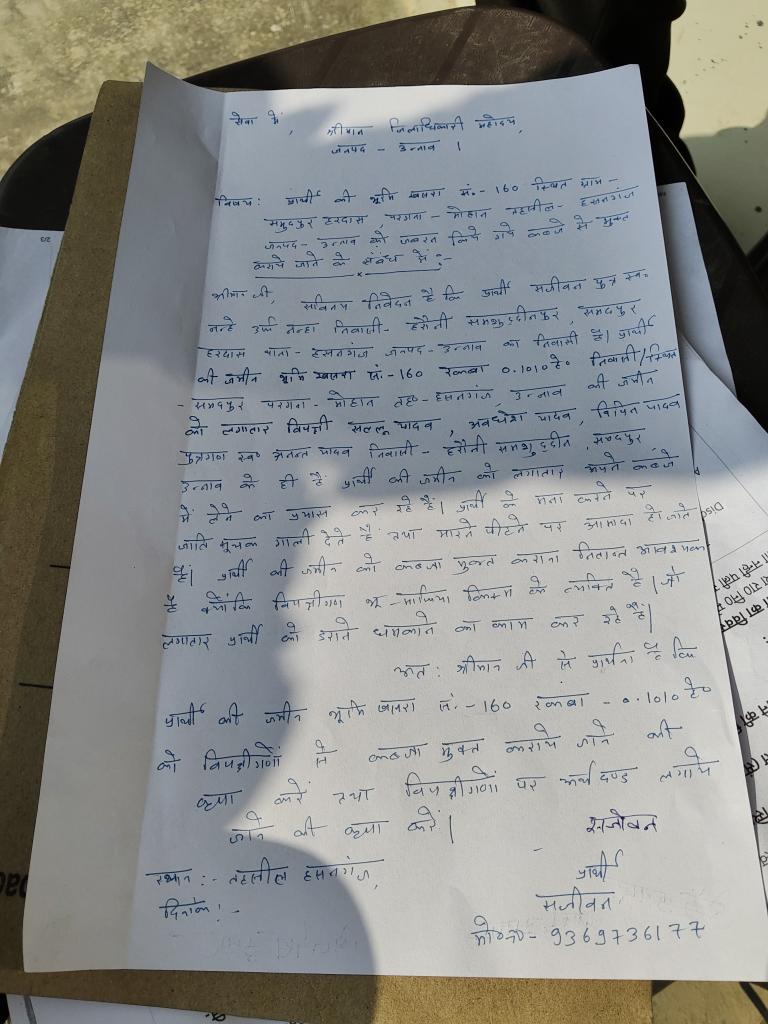 सेवा में,
श्रीमान जिलाधिकारी महोदय,
जनपद - उन्नाव ।
विषय: प्रार्थी की भूमि खसरा सं.- 160 स्थित ग्राम -
समुदपुर हरदास, परगना - मोहान तहसील - हसनगंज
जनपद - उन्नाव को जबरन किये गये कब्जे से मुक्त
कराये जाने के संबंध में :-
श्रीमान जी,
सविनय निवेदन है कि प्रार्थी सजीवन पुत्र स्व०
नन्हे उर्फ नन्हा निवासी - हसौनी समशुद्दीनपुर, समदपुर
हरदास थाना - हसनगंज जनपद - उन्नाव का निवासी है। प्रार्थी
की जमीन भूमि खसरा सं.- 160 रकबा 0.1010 हे० निवासी/स्थित
- समदपुर परगना - मोहान तह० - हसनगंज, उन्नाव की जमीन
को लगातार विपक्षी सल्लू यादव, अवधेश यादव, विपिन यादव
पुत्रगण स्व० अनन्त यादव निवासी - हसौनी समशुद्दीन, समदपुर
उन्नाव के ही हैं प्रार्थी की जमीन को लगातार अपने कब्जे
में लेने का प्रयास कर रहे हैं। प्रार्थी के मना करने पर
जाति सूचक गाली देते हैं तथा मारने पीटने पर आमादा हो जाते
हैं। प्रार्थी की जमीन को कब्जा मुक्त कराना नितान्त आवश्यक
है क्योंकि विपक्षीगण भू - माफिया किस्म के व्यक्ति है। जो
लगातार प्रार्थी को डराने धमकाने का काम कर रहे हैं।
अत: श्रीमान जी से प्रार्थना है कि
प्रार्थी की जमीन भूमि खसरा सं.- 160 रकबा - 0.1010 हे०
को विपक्षीगणों से कब्जा मुक्त कराये जाने की
कृपा करें तथा विपक्षीगणों पर अर्थदण्ड लगाये
जाने की कृपा करें।
सजीवन
स्थान :- तहसील हसनगंज,
प्रार्थी
दिनांक :-
सजीवन
मो०नं०- 9369736177